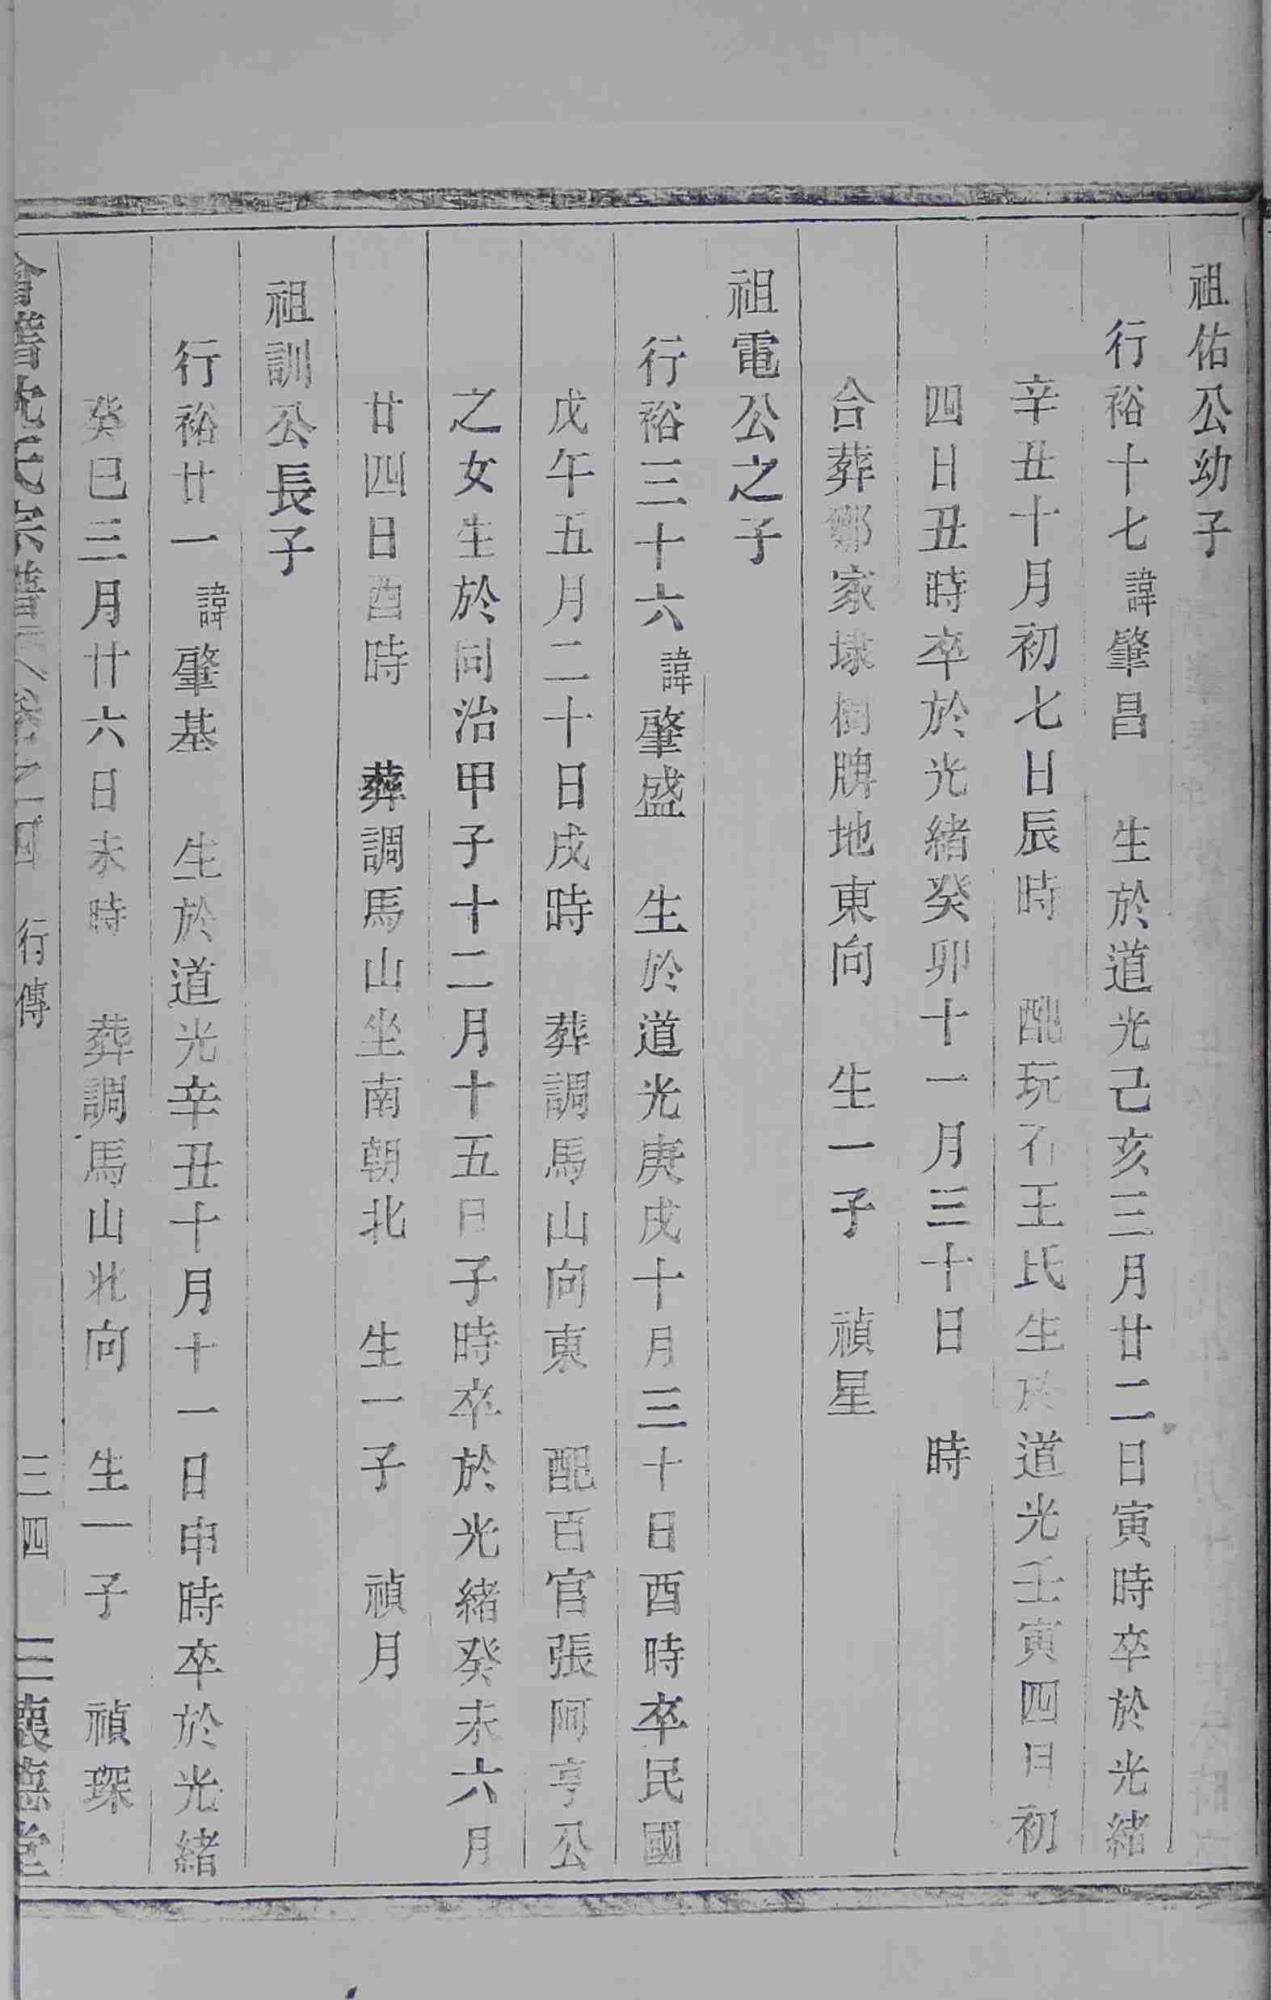 祖佑公幼子
行裕十七諱肇昌　生於道光己亥三月廿二日寅時卒於光緒
辛丑十月初七日辰時　配玩石王氏生於道光壬寅四月初
四日丑時卒於光緒癸卯十一月三十日　時
合葬鄭家埭樹牌地東向　生一子　禎星
祖電公之子
行裕三十六諱肇盛　生於道光庚戌十月三十日酉時卒民國
戊午五月二十日戌時　葬調馬山向東　配百官張阿亨公
之女生於同治甲子十二月十五日子時卒於光緒癸未六月
廿四日酉時　葬調馬山坐南朝北　生一子　禎月
祖訓公長子
行裕廿一諱肇基　生於道光辛丑十月十一日申時卒於光緒
癸巳三月廿六日未時　葬調馬山北向　生一子　禎琛
會稽沈氏宗譜　卷之四　行傳　三四　懷德堂